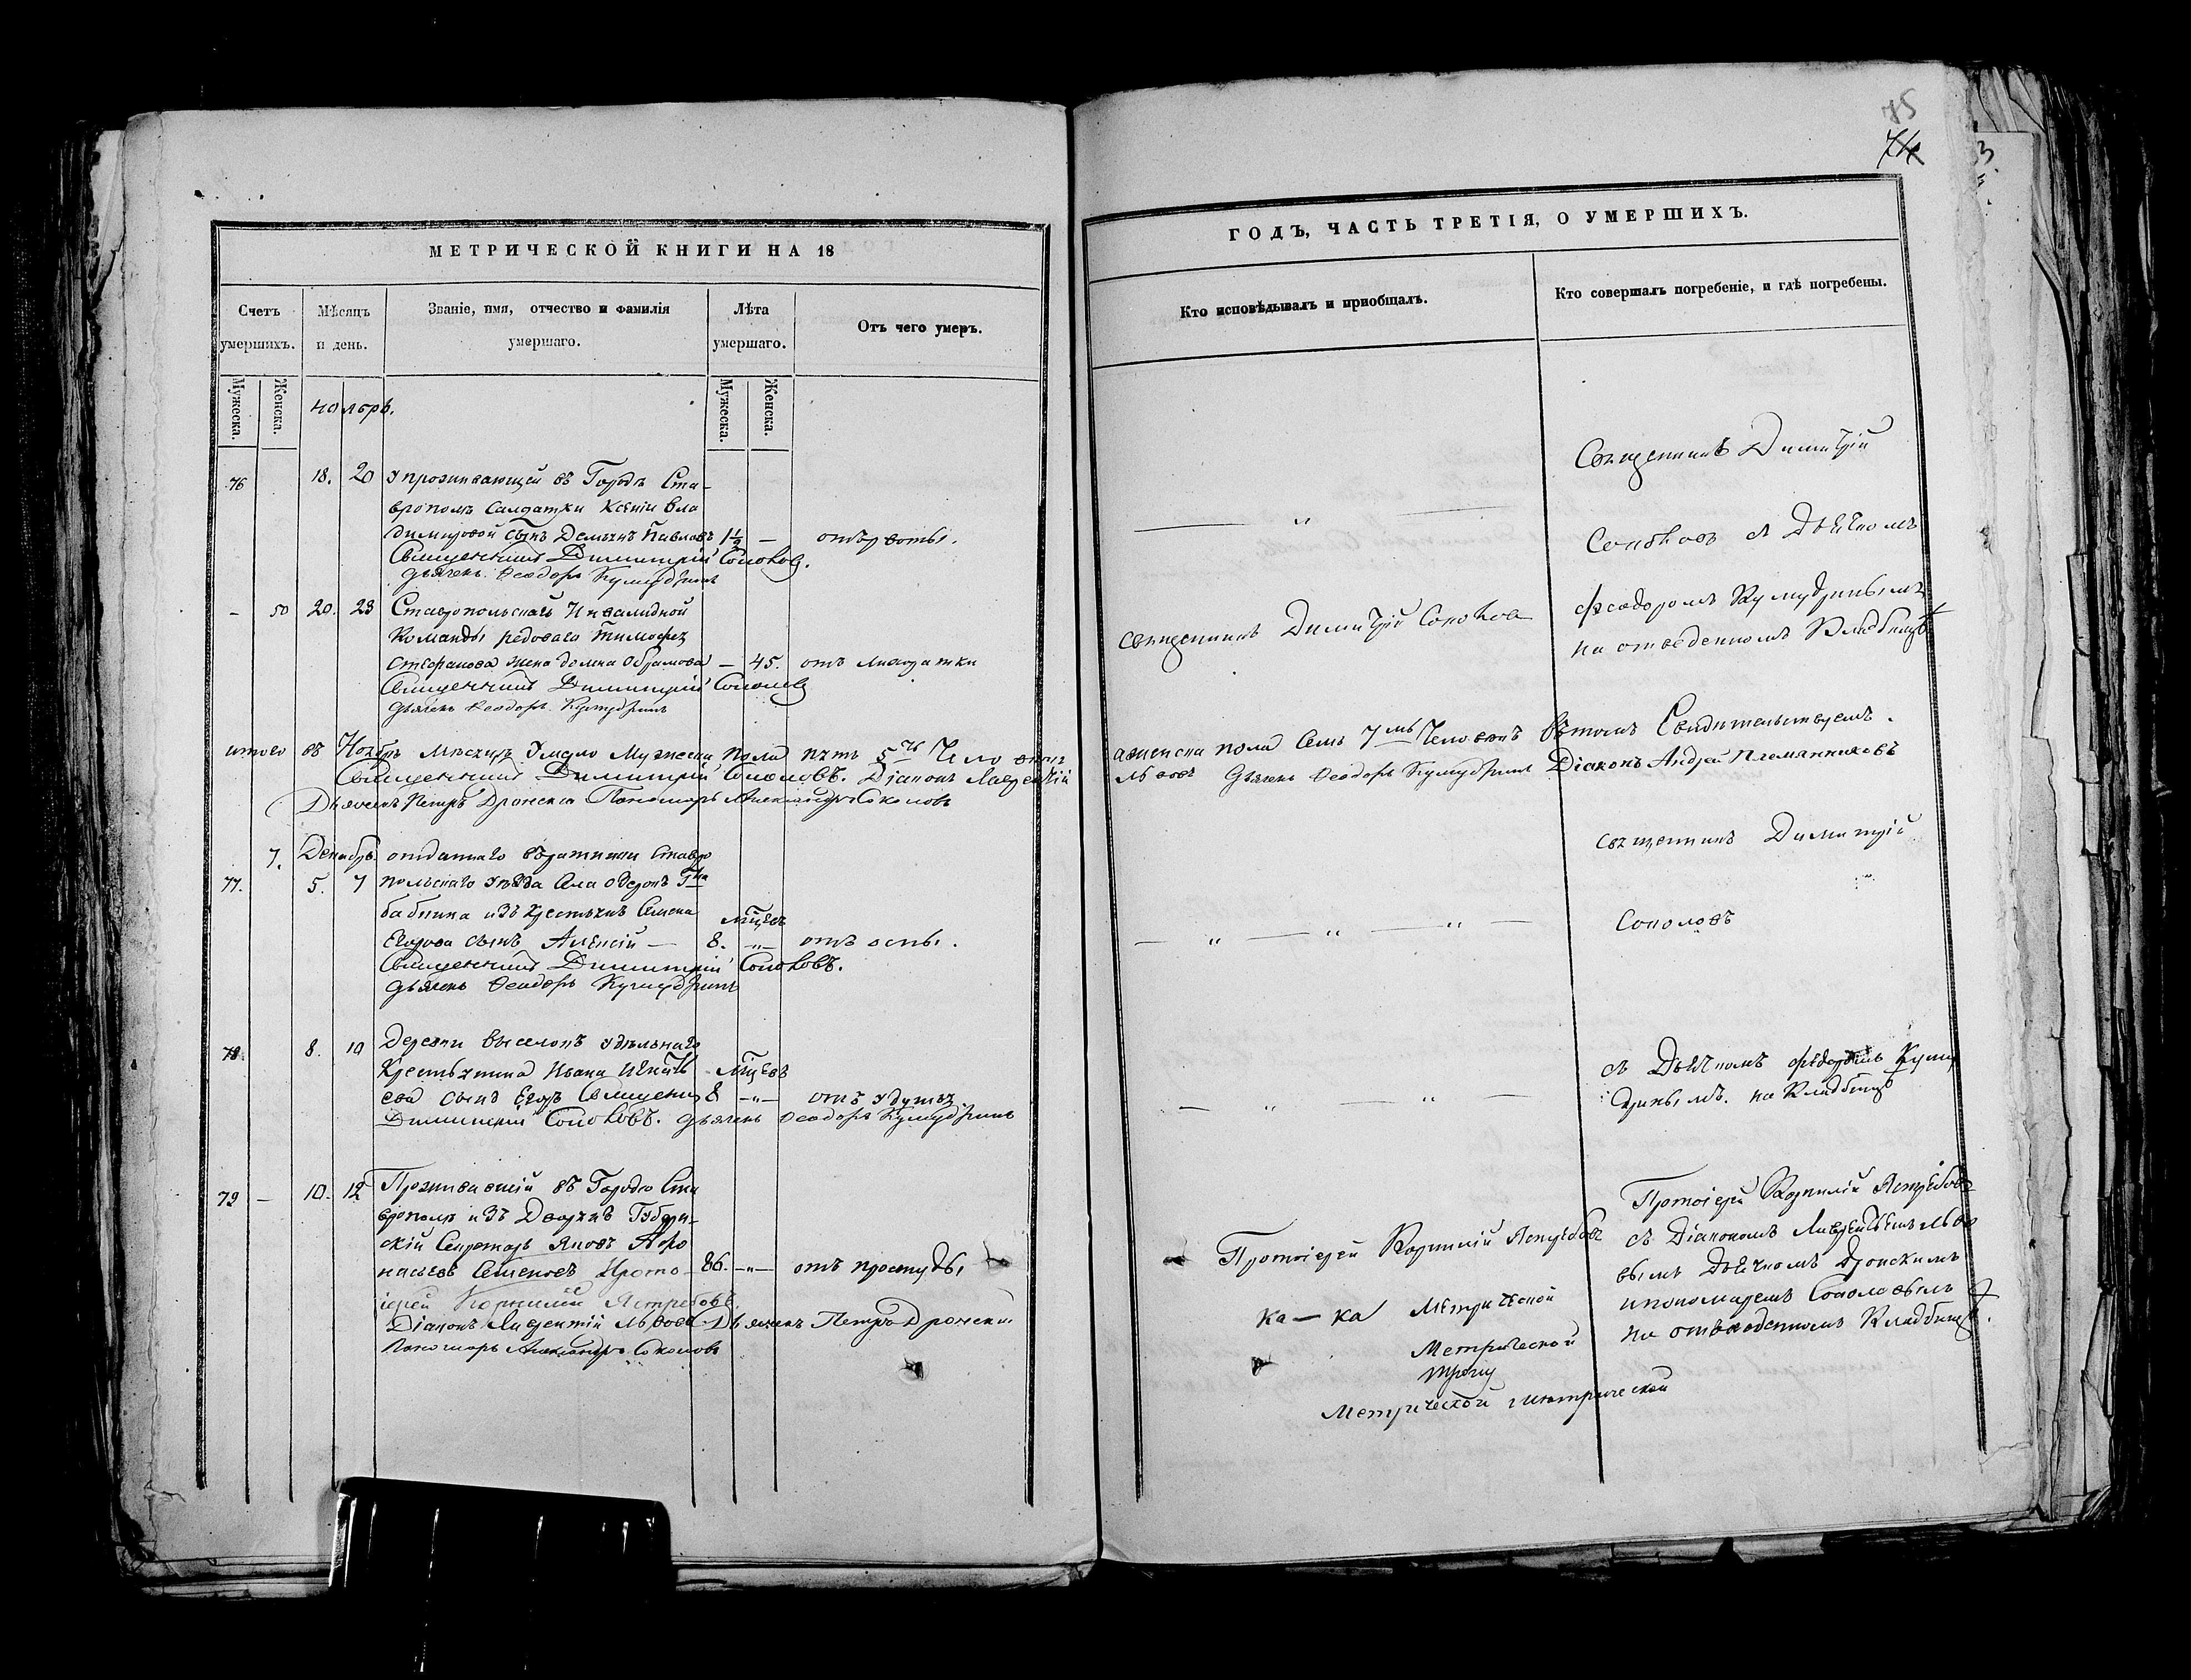 75
74
МЕТРИЧЕСКОЙ КНИГИ НА 18
Счетъ умершихъ.
Мѣсяцъ и день.
Званіе, имя, отчество и фамилія умершаго.
Лѣта умершаго.
Отъ чего умеръ.
Мужеска.
Женска.
Мужеска.
Женска.
ноябрь.
76 18. 20 у проживающей въ Городѣ Ста-
врополѣ Салдатки Ксеніи Вла
димировой сынъ Демьянъ Павловъ 1½ — отъ рвоты.
Священникъ Димитрій Соколовъ.
дьячекъ Ѳеодоръ Кумудринъ
— 50 20. 23 Ставропольской Инвалидной
Команды редоваго Тимофея
Стефанова жена домна Абрамова — 45. отъ лихоратки
Священникъ Димитрій Соколовъ
дьячекъ Ѳеодоръ Кумудринъ
итого въ Ноябрѣ мѣсяцѣ умерло Мужеска пола пять 5ть Человекъ
Священникъ Димитрій Соколовъ. Діаконъ Лаврентій
Дьячекъ Петръ Дронскій Пономарь Александръ Соколовъ
7. Декабрь отданнаго въратники Ставро
77. 5. 7 польскаго уѣзда
бабкина изъ крестьянъ Семена
Егорова сынъ Алексій — мѣсяцъ 8. —"— отъ оспы.
Священникъ Димитрій Соколовъ.
дьячекъ Ѳеодоръ Кумудринъ
78. 8. 10 Деревни выселокъ удѣльнаго
Крестьянина Ивана Игнать мѣсяцъ
ева сынъ Егоръ Священникъ 8 —"— отъ удушья
Димитрій Соколовъ. дьячекъ Ѳеодоръ Кумудринъ
79 — 10. 12 Проживавшій въ Городѣ Ста
врополѣ изъ Дворянъ Губерн-
скій Секретарь Яковъ Афо
насьевъ Семеновъ Прото- 86. —"— отъ простуды
іерей Корнилій Ястребовъ.
Діаконъ Лаврентій Львовъ Дьячекъ Петръ Дронскій
Пономарь Александръ Соколовъ
ГОДЪ, ЧАСТЬ ТРЕТІЯ, О УМЕРШИХЪ.
Кто исповѣдывалъ и пріобщалъ.
Кто совершалъ погребеніе, и гдѣ погребены.
Священникъ Димитрій
— " —
Соколовъ съ Дьячкомъ
Ѳеодоромъ Кумудринымъ
священникъ Димитрій Соколовъ
на отведенномъ Кладбищѣ
а женска пола Семь 7мь Человекъ вътомъ Свидительствуемъ.
Львовъ Дьячекъ Ѳеодоръ Кумудринъ Діаконъ Андрей Племянниковъ
священникъ Димитрій
— " — " — " —
Соколовъ
съ Дьячкомъ Федоромъ Куму
— " — " —
дринымъ. на Кладбищѣ
Протоіерей Корнилій Ястребовъ
Протоіерей Корнилій Ястребовъ
съ Діакономъ Лаврентьемъ Льво
вымъ Дьячкомъ Дронскимъ
ипономаремъ Соколовымъ
на отведенномъ Кладбищѣ.
ка — ка Метрической
Метрической
Метрической метрической